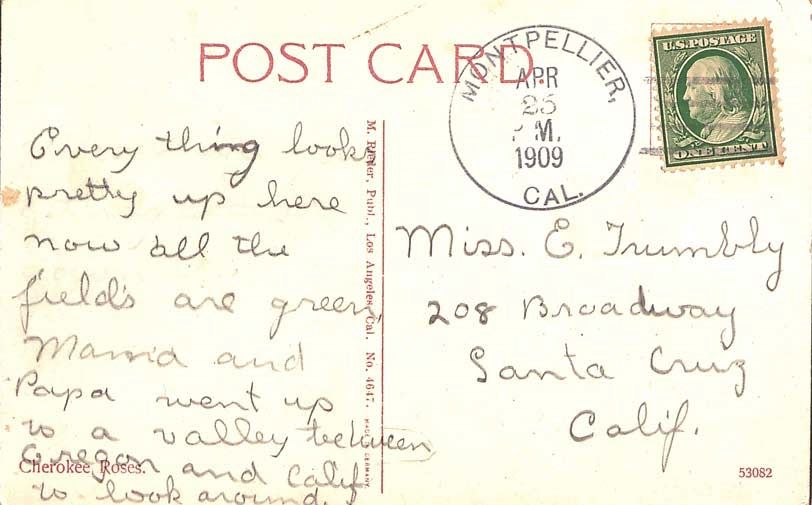 POST CARD.
MONTPELLIER,
APR
25
M.
1909
CAL.
U.S. POSTAGE
ONE CENT
Every thing looks
pretty up here
now all the
fields are green,
Mama and
Papa went up
to a valley between
Oregon and Calif
to look around.
M. Rieder, Publ., Los Angeles, Cal. No. 4647. MADE IN GERMANY.
Miss. E. Trumbly
208 Broadway
Santa Cruz
Calif.
Cherokee Roses.
53082